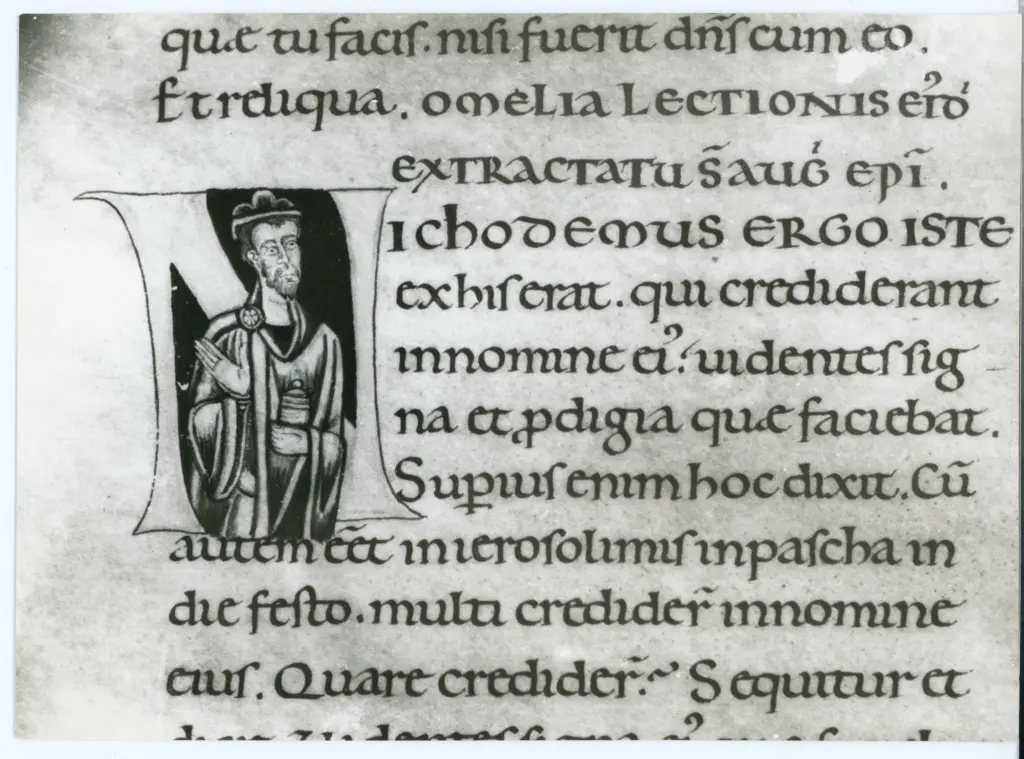 quæ tu facis. nisi fuerit dn̄s cum eo.
Et reliqua. OMELIA LECTIONIS EIꝰD
EXTRACTATU S̄ AUG EPĪ.
NICHODEMUS ERGO ISTE
ex his erat. qui crediderant
in nomine eiꝰ. uidentes sig
na et ꝓdigia quæ faciebat.
Superius enim hoc dixit. Cū
autem eēt in ierosolimis in pascha in
die festo. multi credider̄ in nomine
eius. Quare credider̄. Sequitur et